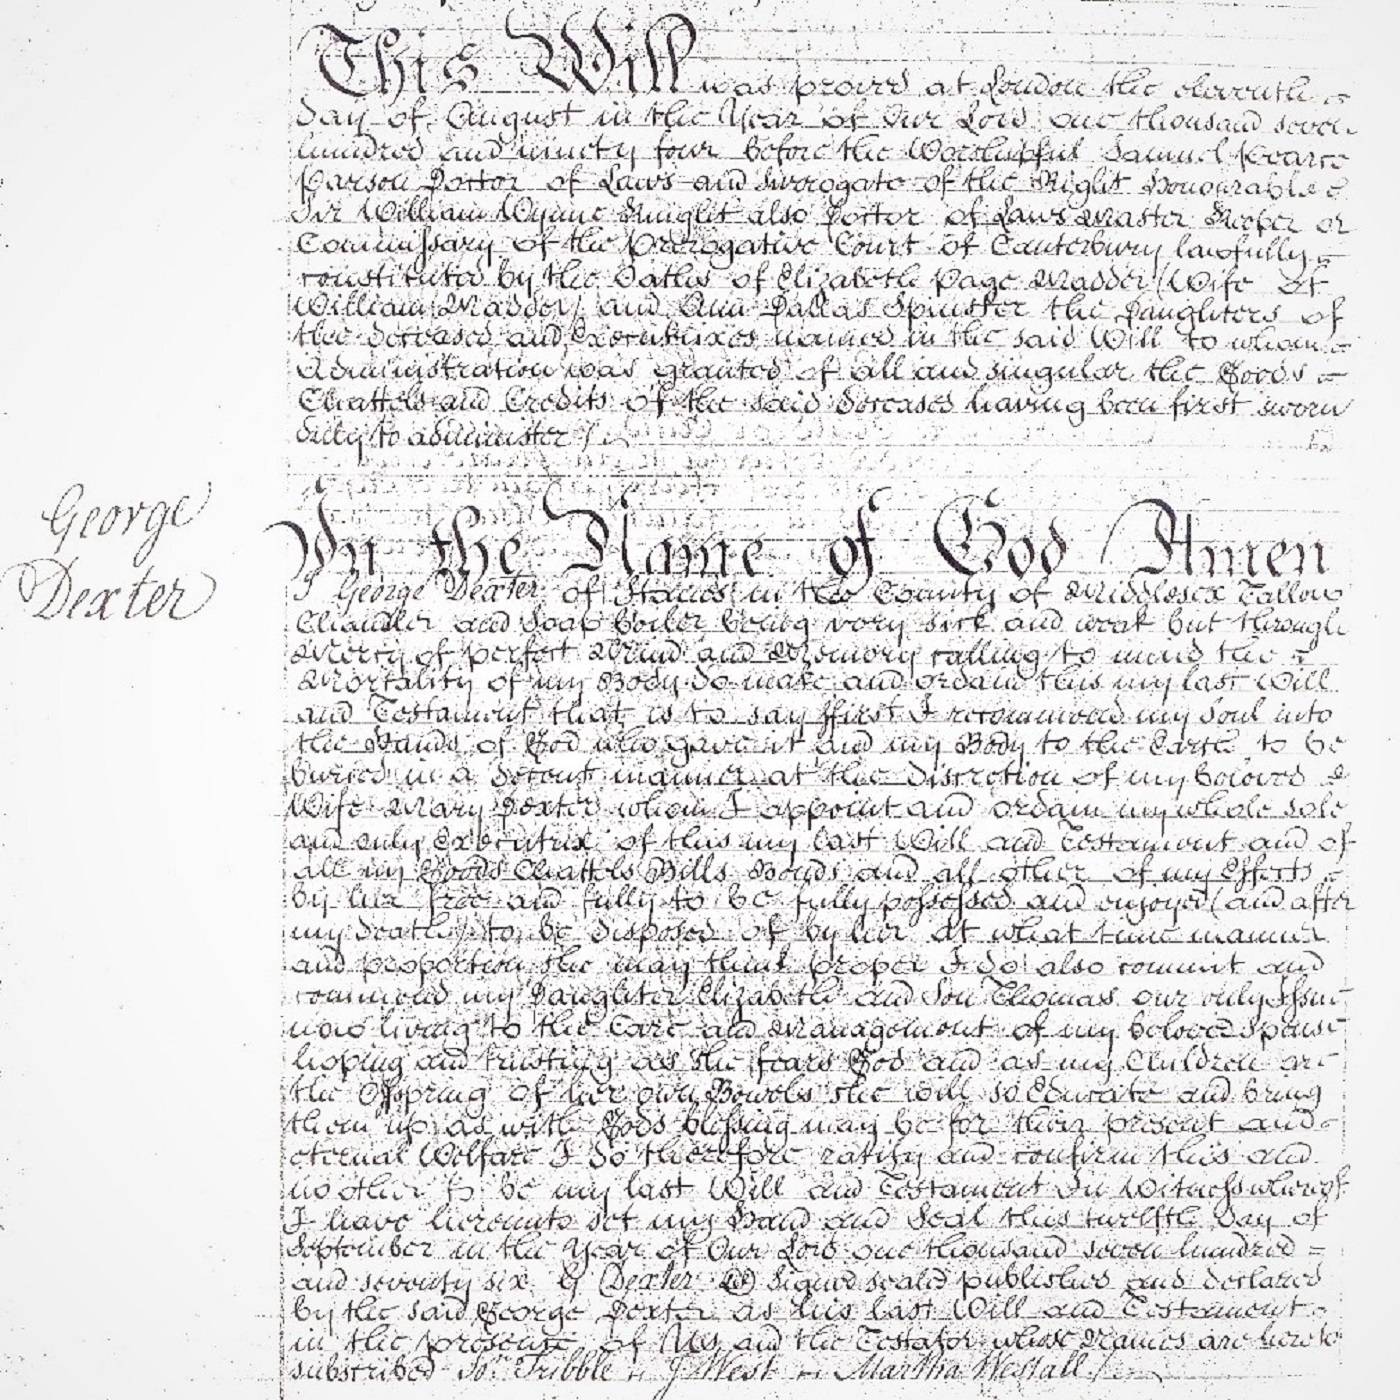 This Will was proved at London the eleventh
day of August in the Year of Our Lord one thousand seven
hundred and ninety four before the Worshipful Samuel Pearce
Parson Doctor of Laws and Surrogate of the Right Honourable
Sir William Wynne Knight also Doctor of Laws Master Keeper or
Commissary of the Prerogative Court of Canterbury lawfully
constituted by the Oaths of Elizabeth Page Madder (Wife of
William Madder) and Ann Dallas Spinster the Daughters of
the deceased and Executrixes named in the said Will to whom
Administration was granted of all and singular the Goods
Chattels and Credits of the said deceased having been first sworn
duly to administer
George
Dexter
In the Name of God Amen
I George Dexter of Staines in the County of Middlesex Tallow
Chandler and Soap Boiler being very sick and weak but through
Mercy of perfect Mind and Memory calling to mind the
Mortality of my Body do make and ordain this my last Will
and Testament that is to say ffirst I recommend my Soul into
the Hands of God who gave it and my Body to the Earth to be
buried in a decent manner at the discretion of my beloved
Wife Mary Dexter whom I appoint and ordain my whole sole
and only Executrix of this my last Will and Testament and of
all my Goods Chattels Bills Bonds and all other of my Effects
by her free and fully to be fully possessed and enjoyed (and after
my death) to be disposed of by her at what time manner
and proportion she may think proper I do also commit and
commend my Daughter Elizabeth and Son Thomas our only Issue
now living to the Care and Management of my beloved Spouse
hoping and trusting as she fears God and as my Children are
the Offspring of her own Bowels she will so Educate and bring
them up as with Gods blessing may be for their present and
eternal Welfare I do therefore ratify and confirm this and
no other to be my last Will and Testament In Witness whereof
I have hereunto set my Hand and Seal this twelfth day of
September in the Year of Our Lord one thousand seven hundred
and seventy six G Dexter Signed sealed published and declared
by the said George Dexter as his last Will and Testament
in the presence of Us and the Testator whose Names are hereto
subscribed Jos. Tribble J West Martha Westall